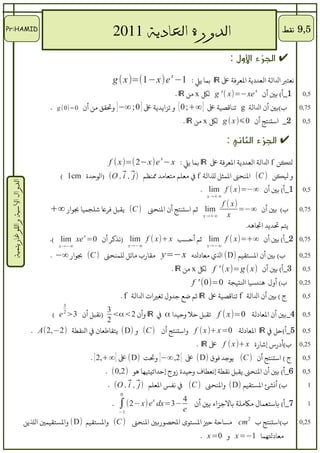 Pr:HAMID
الدورة العادية 2011
9,5 نقط
✔ الجزء الأول :
نعتبر الدالة العددية المعرفة على IR بما يلي : g(x)=(1−x)e^x−1
1_أ) بين أن g'(x)=−xe^x لكل x من IR. 0,5
ب)بين أن الدالة g تناقصية على [0;+∞[ و تزايدية على ]−∞;0] وتحقق من أن g(0)=0 . 0,75
2_ استنتج أن g(x)⩽0 لكل x من IR. 0,5
✔ الجزء الثاني :
لتكن f الدالة العددية المعرفة على IR بما يلي : f(x)=(2−x)e^x−x
و ليكن (C) المنحنى الممثل للدالة f في معلم متعامد ممنظم (O, i, j) (الوحدة 1cm )
1_أ) بين أن lim f(x)=−∞ x→+∞ . 0,5
ب) بين أن lim f(x)/x =−∞ x→+∞ ثم استنتج أن المنحنى (C) يقبل فرعا شلجميا بجوار +∞ 0,75
يتم تحديد اتجاهه.
2_أ) بين أن lim f(x)=+∞ x→−∞ ثم أحسب lim f(x)+x x→−∞ (نذكر أن lim xe^x=0 x→−∞ ). 0,75
ب) بين أن المستقيم (D) الذي معادلته y=−x مقارب مائل للمنحنى (C) بجوار −∞ . 0,25
3_أ) بين أن f'(x)=g(x) لكل x من IR. 0,5
ب) أول هندسيا النتيجة f'(0)=0 0,25
ج ) بين أن الدالة f تناقصية على IR ثم ضع جدول تغيرات الدالة f . 0,5
4_بين أن المعادلة f(x)=0 تقبل حلا وحيدا α في IR وأن 3/2<α<2 (نقبل أن e^(3/2)>3 ) 0,5
5_أ)حل في IR المعادلة f(x)+x=0 واستنتج أن (C) و (D) يتقاطعان في النقطة A(2,−2) . 0,5
ب)أدرس إشارة f(x)+x على IR . 0,25
ج ) استنتج أن (C) يوجد فوق (D) على ]−∞,2[ وتحت (D) على ]2,+∞[. 0,5
6_أ) بين أن المنحنى يقبل نقطة إنعطاف وحيدة زوج إحداثيتيها هو (0,2) 0,5
ب) أنشئ المستقيم (D) والمنحنى (C) في نفس المعلم (O, i, j) . 1
7_أ) باستعمال مكاملة بالاجزاء بين أن ∫_{−1}^{0} (2−x)e^x dx=3−4/e . 1
ب)استنتج ب cm² مساحة حيز المستوى المحصور بين المنحنى (C) والمستقيم (D) والمستقيمين اللذين 0,25
معادلتهما x=−1 و x=0 .